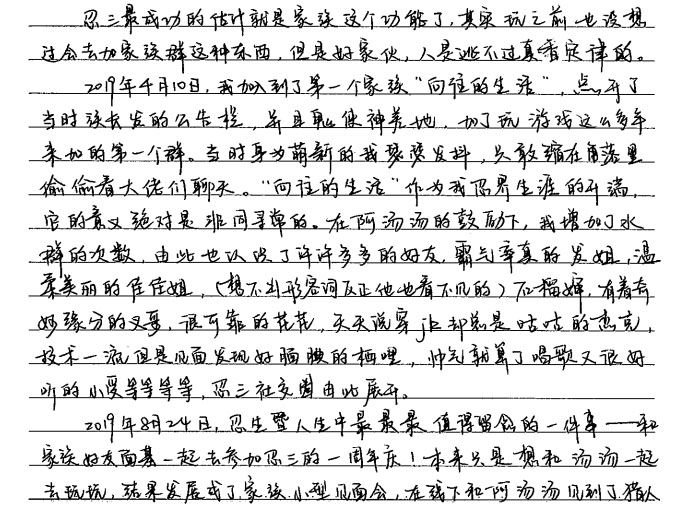 忍三最成功的估计就是家族这个功能了,其实玩之前也没想
过会去加家族群这种东西,但是好家伙,人是逃不过真香定律的。
2019年4月10日,我加入到了第一个家族“向往的生活”,点开了
当时族长发的公告栏,并且鬼使神差地,加了玩游戏这么多年
来加的第一个群。当时身为萌新的我瑟瑟发抖,只敢缩在角落里
偷偷看大佬们聊天。“向往的生活”作为我忍界生涯的开端,
它的意义绝对是非同寻常的。在阿汤汤的鼓励下,我增加了水
群的次数,由此也认识了许许多多的好友,霸气率真的发姐,温
柔美丽的佳佳姐,(想不出形容词反正他也看不见的)石榴婶,有着奇
妙缘分的叉哥,很可靠的花花,天天说穿jk却总是咕咕的杰克,
技术一流但是见面发现好腼腆的栖哩,帅气就算了唱歌又很好
听的小受等等等等,忍三社交圈由此展开。
2019年8月24日,忍生暨人生中最最最值得留念的一件事——和
家族好友面基一起去参加忍三的一周年庆!本来只是想和汤汤一起
去玩玩,结果发展成了家族小型见面会,在线下和阿汤汤见到了猎人